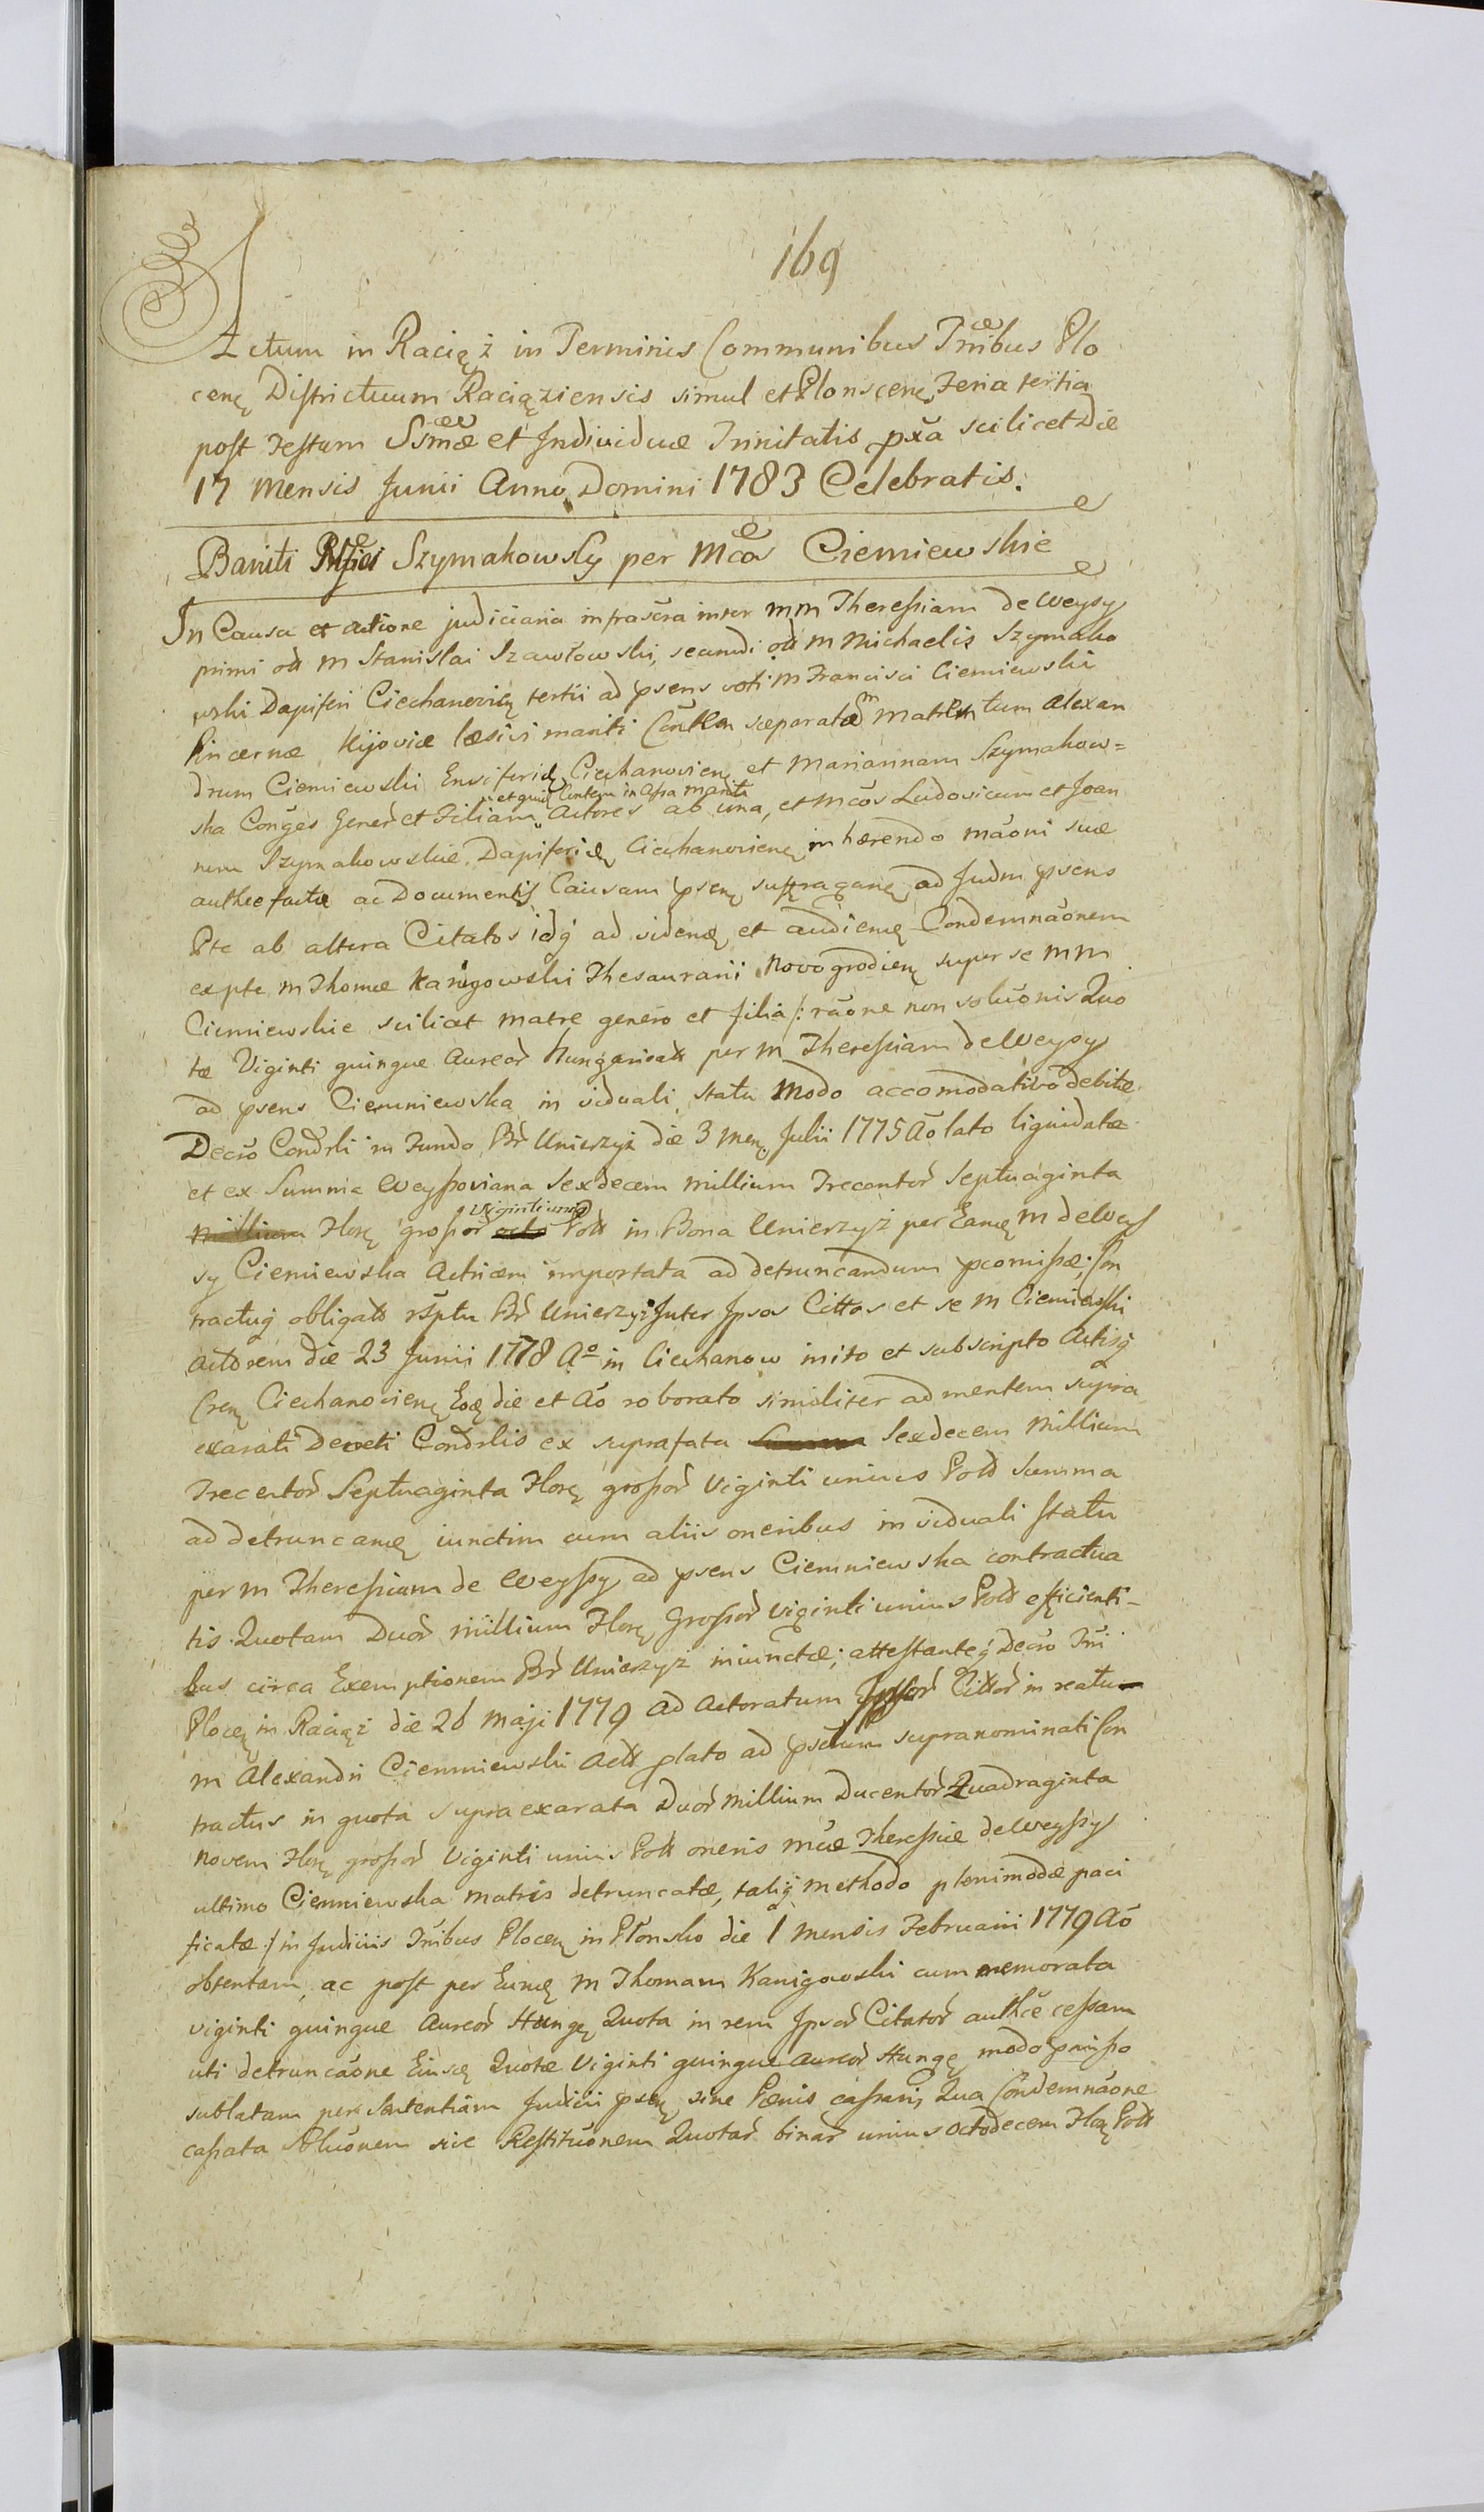 169
Actum in Raciąż in Terminis Communibus Trnibus Plo
cen Districtuum Raciąziensis simul et Plonscen Feria tertia
post Festum SSmæ et Individuæ Trinitatis pxa scilicet Die
17 Mensis Junii Anno Domini 1783 Celebratis.
Baniti Szymakowscy per Mcos Ciemiewskie
In Causa et actione judiciaria infrascra inter mm Theressiam de Weysy
primi olt m Stanislai Szawłowski, secundi olt m Michaelis Szymako
wski Dapiferi Ciechanovien tertii ad psens voti m Francisci Ciemiewski
Pincernæ Kijoviæ læsivi mariti Contlem sæparatam Matrem tum Alexan
drum Ciemiewski Ensiferid Ciechanovien et Mariannam Szymakow=
et quid Contem in Assa mariti
ska Conges Gener et Filiam Actores ab una, et mcos Ludovicum et Joan
nem Szymakowskie Dapiferid Ciechanovien inhærendo mãoni suæ
authce factæ ac Documentis Causam psen suffragan ad Judm psens
Pte ab altera Citatos idq ad viden et audien Condemnãonem
ex pte m Thomæ Kanigowski Thesaurarii Novogrodien super se mm
Ciemiewskie scilicet matre genero et filia /: rãone non solũonis Quo
tæ Viginti quinque Aureor Hungaricalt per m Theressiam de Weysy
ad psens Ciemniewska in viduali statu modo accomodativo debitæ
Decro Condrli in Fundo Br Unierzyż die 3 men Julii 1775 Ao lato liquidatæ
et ex Summa Weyssoviana Sexdecem millium Trecentor Septuaginta
Viginti unius
millium Flor grossor octo Polt in Bona Unierzyż per Eand m de Wey
sy Ciemiewska Actricem importata ad detruncandum pcomissæ; Con
tractuq obligat rsptu Br Unierzyż Inter Ipsos Cittos et se m Ciemiewski
Actorem die 23 Junii 1778 Ao in Ciechanow inito et subscripto Actisq
Cren Ciechanovien Eod die et Ao roborato similiter ad mentem supra
exarati Decreti Condrlis ex suprafata Summa Sexdecem Millium
Trecentor Septuaginta Flor grossor Viginti unius Polt Summa
ad detruncand iunctim cum aliis oneribus in viduali statu
per m Theressiam de Weyssy ad psens Ciemniewska contractua
tis Quotam Duor millium Flor Grossor Viginti unius Polt efficienti-
bus circa Exemptionem Br Unierzyż iniunctæ; attestanteq Decro Trni
Plocen in Raciąż die 26 Maji 1779 ad Actoratum Ipsor Cittor in reatu
m Alexandri Ciemniewski Actt plato ad psctum supranominati Con
tractus in quota supra exarata Duor millium Ducentor Quadraginta
novem Flor grossor Viginti unius Polt oneris mcæ Theressiæ de Weyssy
ultimo Ciemniewska matris detruncatæ, taliq methodo plenimodæ paci
ficatæ :/ in Judiciis Trnibus Plocen in Płonsko die 1 mensis Februarii 1779 Ao
obtentam, ac post per Eund m Thomam Kanigowski cum memorata
viginti quinque Aureor Hung Quota in rem Ipsor Citator authce cessam
uti detruncãone Eiusd Quotæ Viginti quinque Aureor Hung modo pmisso
sublatam per Sententiam Judicii psen sine Pænis cassari, Qua Condemnãone
cassata Solũonem sive Restitũonem Quotar binar unius octodecem Flor Polt